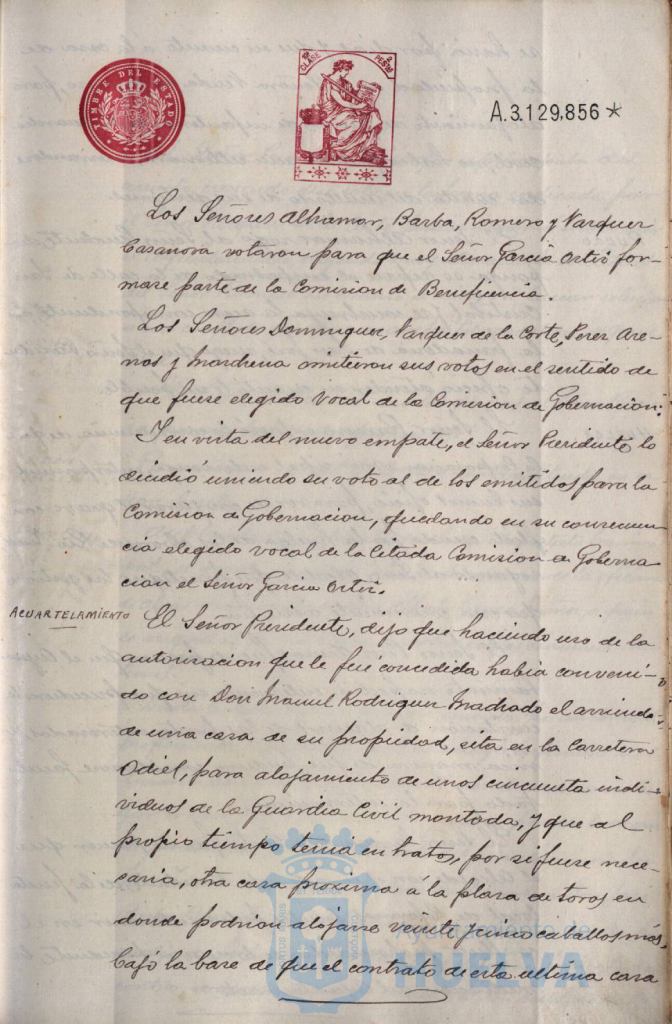 TIMBRE DEL ESTADO
CLASE
PESETAS
A.3.129,856 *
Los Señores Alhamar, Barba, Romero y Vazquez
Casanova votaron para que el Señor Garcia Ortiz for-
mase parte de la Comision de Beneficencia.
Los Señores Dominguez, Vazquez de la Corte, Perez Are-
nos y Marchena emitieron sus votos en el sentido de
que fuese elegido vocal de la Comision de Gobernacion:
I en vista del nuevo empate, el Señor Presidente lo
decidió uniendo su voto al de los emitidos para la
Comision de Gobernacion, quedando en su consecuen-
cia elegido vocal de la citada Comision de Goberna-
cion el Señor Garcia Ortiz.
ACUARTELAMIENTO
El Señor Presidente, dijo que haciendo uso de la
autorizacion que le fue concedida habia conveni-
do con Don Manuel Rodriguez Machado el arriendo
de una casa de su propiedad, sita en la Carretera
Odiel, para alojamiento de unos cincuenta indi-
viduos de la Guardia Civil montada, y que al
propio tiempo tenia en tratos, por si fuese nece-
saria, otra casa proxima á la plaza de toros en
donde podrian alojarse veinte y cinco caballos más
bajo la base de que el contrato de esta ultima casa
Ayuntamiento de
HUELVA